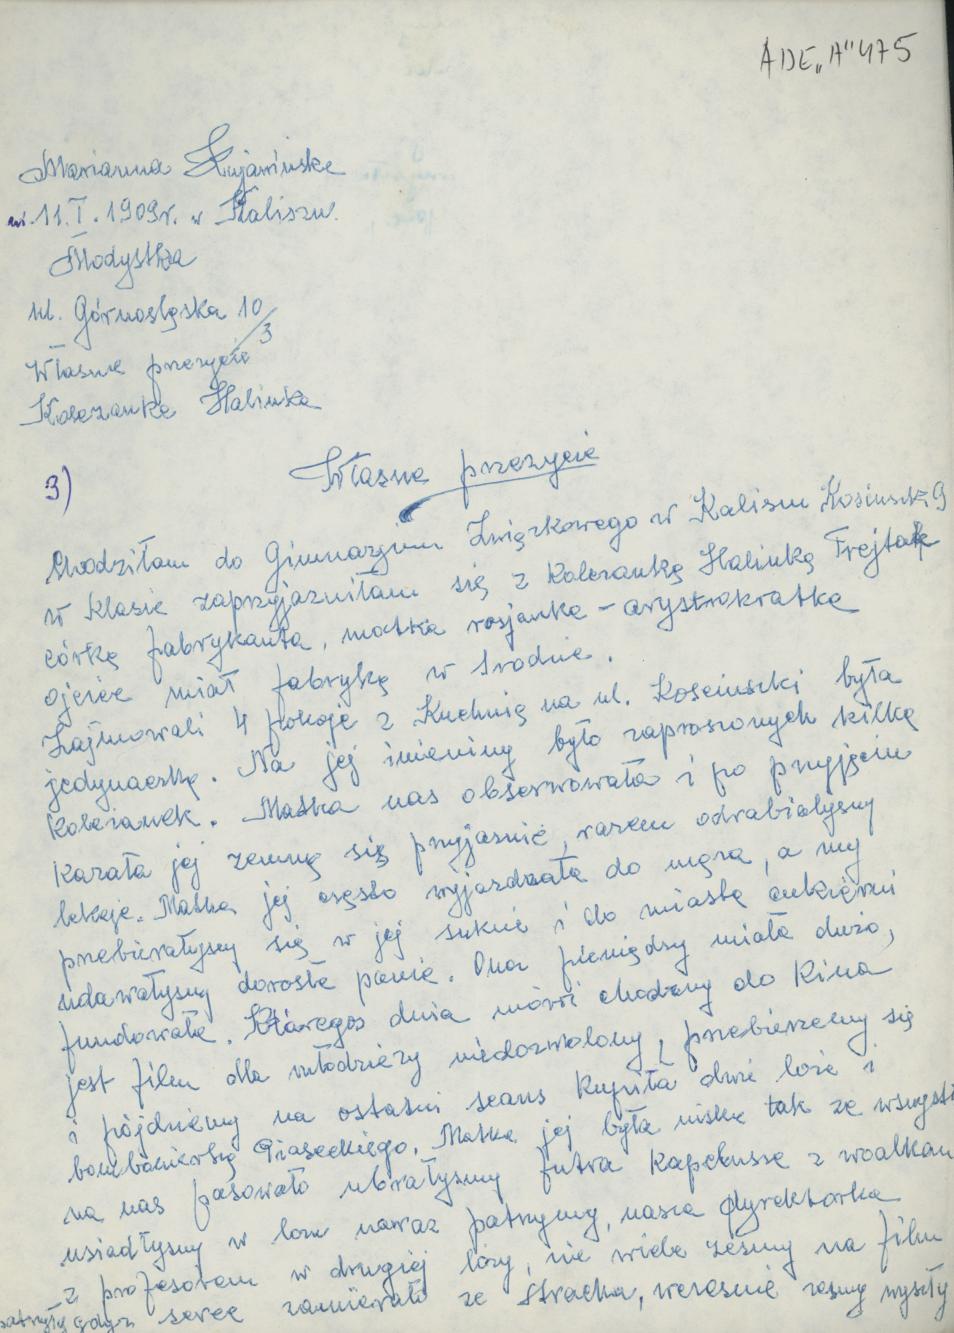 ADE „A" 475
Marianna Kujawińska
ur. 11.I.1909r. w Kaliszu.
Modystka
ul. Górnośląska 10/3
Własne przeżycie
Koleżanka Halinka
3)
Własne przeżycie
Chodziłam do Gimnazjum Związkowego w Kaliszu Kościuszki 9
w klasie zaprzyjazniłam się z koleżanką Halinką Frejtak
córką fabrykanta, matka rosjanka - arystrokratka
ojciec miał fabrykę w Grodnie.
Zajmowali 4 pokoje z Kuchnią na ul. Kościuszki była
jedynaczką. Na jej imieniny było zaproszonych kilka
koleżanek. Matka nas obserwowała i po przyjęciu
kazała jej zemną się przyjaźnić, razem odrabiałyśmy
lekcje. Matka jej często wyjazdzała do męża, a my
przebierałyśmy się w jej suknie i do miasta cukierni
udawałyśmy dorosłe panie. Ona pieniędzy miała dużo,
fundowała. Któregoś dnia mówi chodźmy do Kina
jest film dla młodzieży niedozwolony, przebierzemy się
i pójdziemy na ostatni seans kupiła dwie loże i
bombonierkę Piaseckiego. Matka jej była niska tak ze wszystko
na nas pasowało ubrałyśmy futra kapelusze z woalkami
usiadłyśmy w lozy naraz patrzymy, nasza dyrektorka
z profesorem w drugiej lozy, nie wiele żeśmy na film
patrzyły gdyż serce zamierało ze stracha, wcześnie żeśmy wyszły